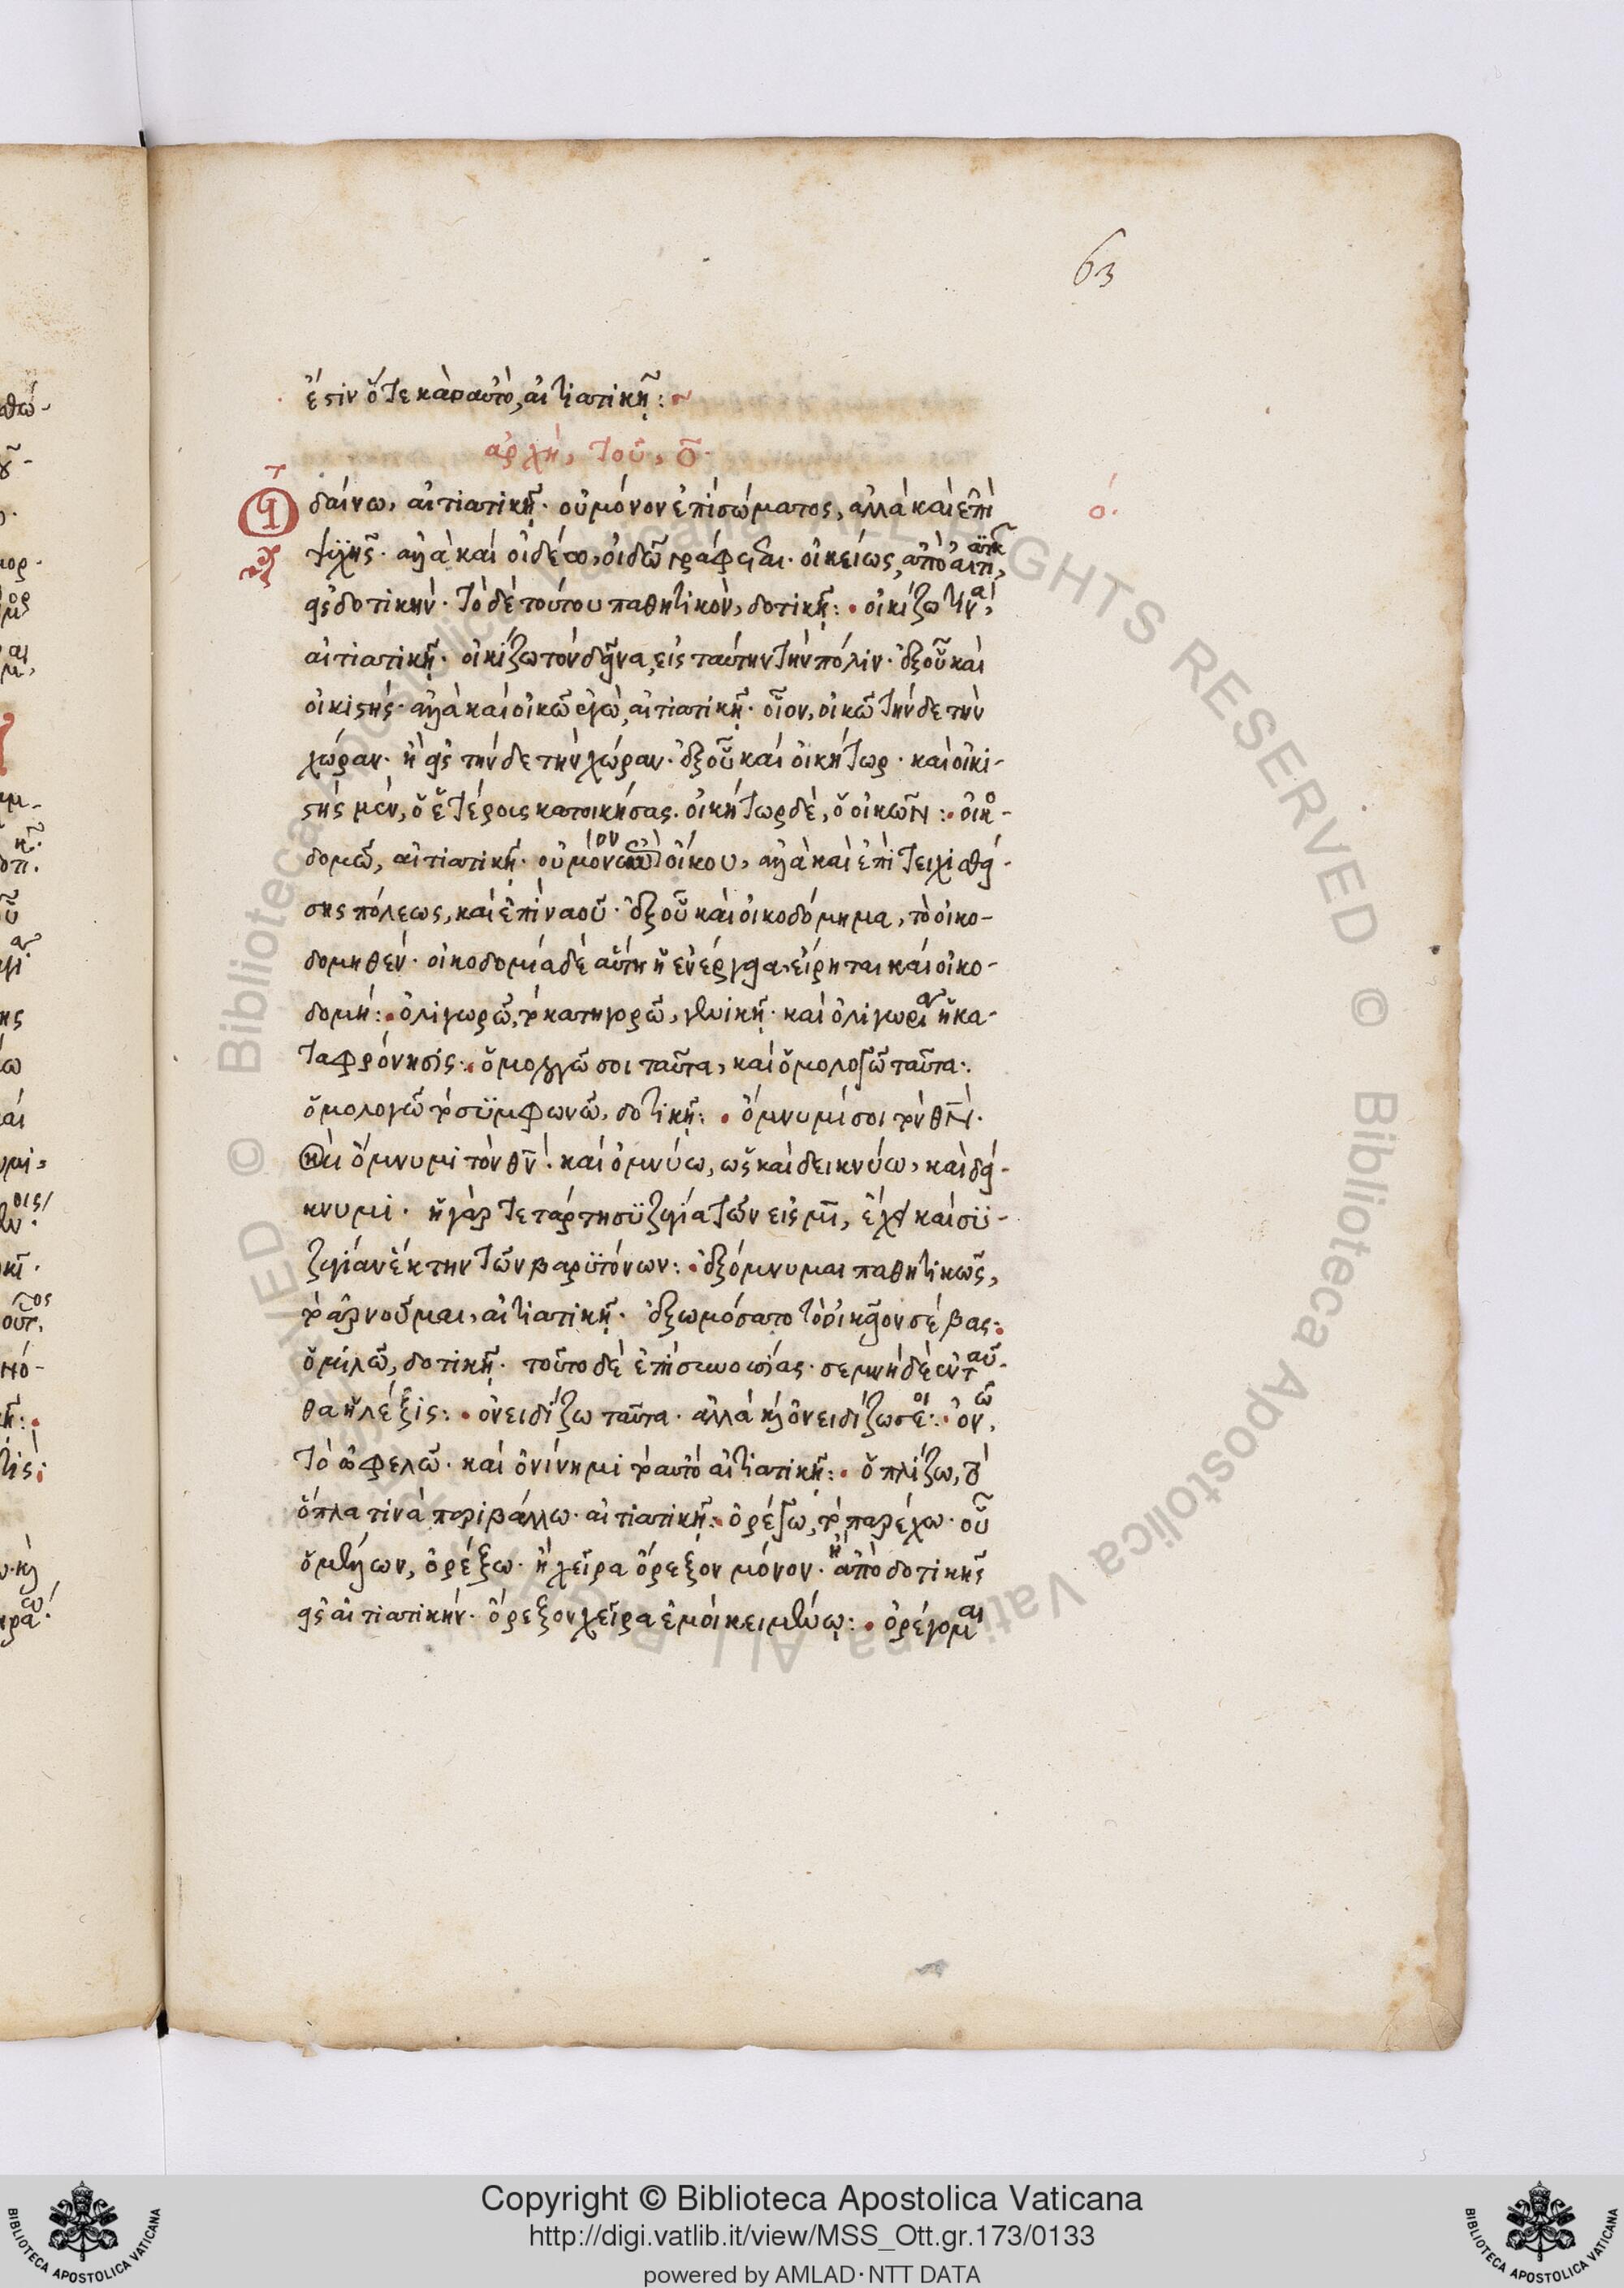 63
ἔστιν ὅτε καὶ παρ' αὐτὸ, αἰτιατικῇ :~
ἀρχὴ, τοῦ, ο.
ὁ.
Οἰδαίνω, αἰτιατικῇ. οὐ μόνον ἐπὶ σώματος, ἀλλὰ καὶ ἐπὶ
ψυχῆς. ἀλλὰ καὶ οἰδέω, οἰδῶ γράφεται. οἰκείως, ἀπὸ αἰτιατικῆς,
εἰς δοτικήν. τὸ δὲ τούτου παθητικὸν, δοτικῇ : οἰκίζω τινὰ,
αἰτιατικῇ. οἰκίζω τὸν δεῖνα, εἰς ταύτην τὴν πόλιν. ἐξ οὗ καὶ
οἰκιστής. ἀλλὰ καὶ οἰκῶ ἐγὼ, αἰτιατικῇ. οἷον, οἰκῶ τήνδε τὴν
χώραν. ἢ εἰς τήνδε τὴν χώραν. ἐξ οὗ καὶ οἰκήτωρ. καὶ οἰκι-
στὴς μὲν, ὁ ἑτέροις κατοικήσας. οἰκήτωρ δὲ, ὁ οἰκῶν : οἰκο-
δομῶ, αἰτιατικῇ. οὐ μόνον ἐπὶ οἴκου, ἀλλὰ καὶ ἐπὶ τειχισθεί-
σης πόλεως, καὶ ἐπὶ ναοῦ. ἐξ οὗ καὶ οἰκοδόμημα, τὸ οἰκο-
δομηθέν. οἰκοδομία δὲ αὕτη ἡ ἐνέργεια. εἴρηται καὶ οἰκο-
δομή : ὀλιγωρῶ, τὸ κατηγορῶ, γενικῇ. καὶ ὀλιγωρία ἡ κα-
ταφρόνησις : ὁμολογῶ σοι ταῦτα, καὶ ὁμολογῶ ταῦτα.
ὁμολογῶ τὸ συμφωνῶ, δοτικῇ : ὄμνυμί σοι τὸν θν̄.
καὶ ὄμνυμι τὸν θν̄. καὶ ὀμνύω, ὡς καὶ δεικνύω, καὶ δεί-
κνυμι. ἡ γὰρ τετάρτη συζυγία τῶν εἰς μι, ἔχει καὶ συ-
ζυγίαν ἕκτην τῶν βαρυτόνων : ἐξόμνυμαι παθητικῶς,
τὸ ἀρνοῦμαι, αἰτιατικῇ. ἐξωμόσατο τὸ οἰκεῖον σέβας :
ὁμιλῶ, δοτικῇ. τοῦτο δὲ ἐπὶ συνουσίας. σεμνὴ δὲ ἐνταῦ-
θα ἡ λέξις : ὀνειδίζω ταῦτα. ἀλλὰ καὶ ὀνειδίζω σέ : ὀνῶ,
τὸ ὠφελῶ. καὶ ὀνίνημι τὸ αὐτὸ αἰτιατικῇ : ὁπλίζω, τὸ
ὅπλα τινὰ περιβάλλω. αἰτιατικῇ : ὀρέγω, τὸ παρέχω. οὗ
ὁ μέλλων, ὀρέξω. ἢ χεῖρα ὄρεξον μόνον. ἢ ἀπὸ δοτικῆς
εἰς αἰτιατικήν. ὄρεξον χεῖρα ἐμοὶ κειμένῳ : ὀρέγομαι
Copyright © Biblioteca Apostolica Vaticana
http://digi.vatlib.it/view/MSS_Ott.gr.173/0133
powered by AMLAD·NTT DATA